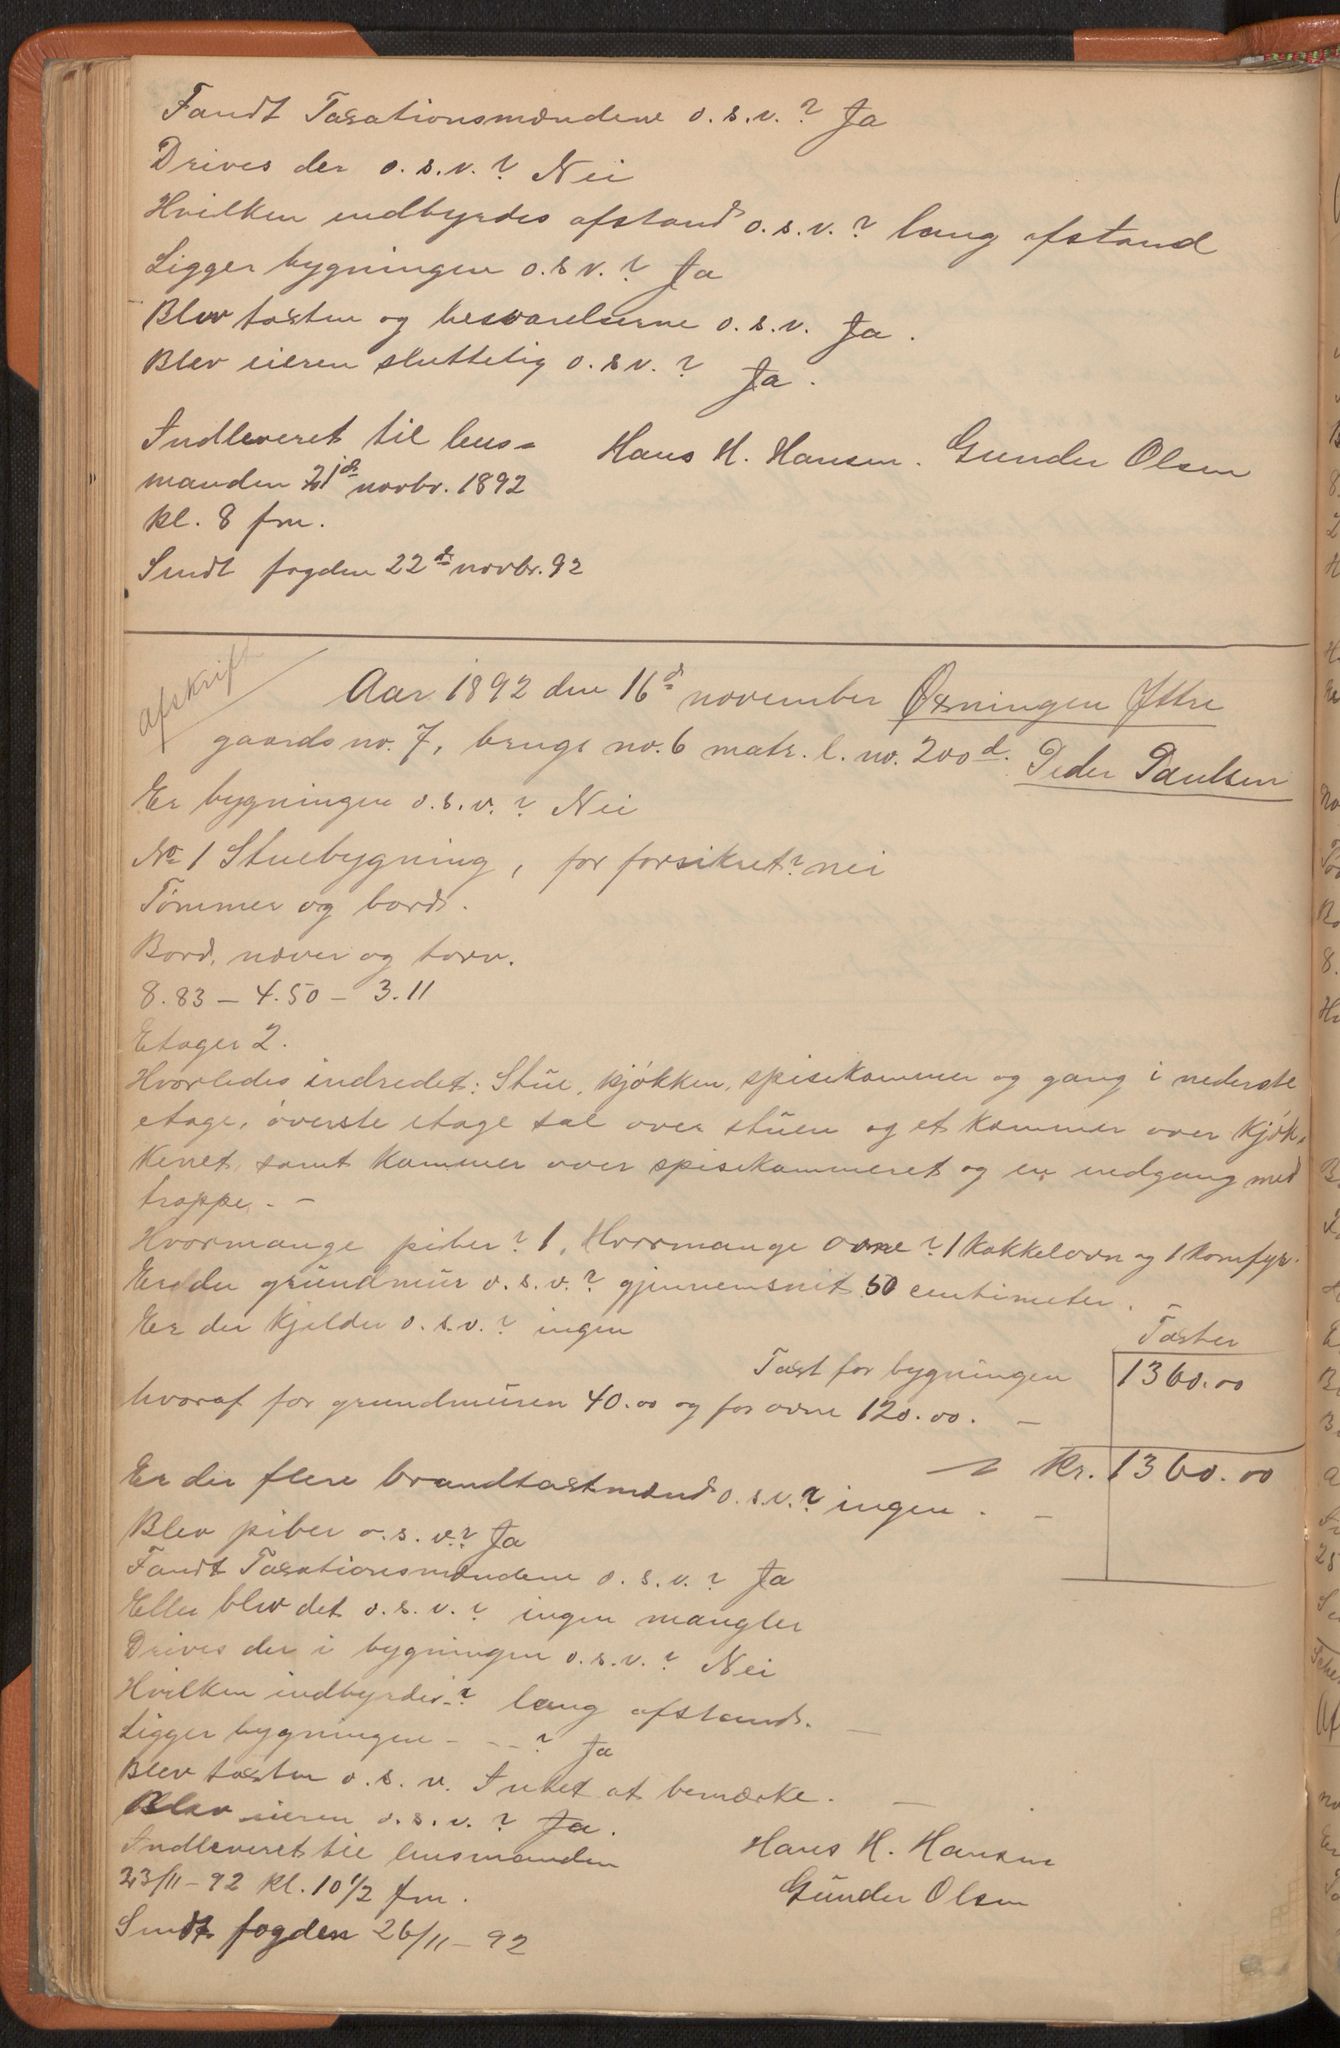 Fandt Taxationsmændene o. s. v.? Ja
Drives der o. s. v.? Nei
Hvilken indbyrdes afstand o. s. v.? lang afstand
Ligger bygningen o. s. v.? Ja
Blev taxten og besvarelserne o. s. v. Ja.
Blev eieren sluttelig o. s. v.? Ja.
Indleveret til lens=
manden 21de novbr. 1892
kl. 8 fm.
Sendt fogden 22de novbr. 92
Hans H. Hansen. Gunder Olsen
Afskrift
Aar 1892 den 16de november Øxningen Ytre
gaards no. 7, brugs no. 6 matr. l. no. 200d. Peder Paulsen
Er bygningen o. s. v.? Nei
No 1 Stuebygning, før forsikret? nei
Tømmer og bord.
Bord, næver og torv.
8.83 – 4.50 – 3.11
Etager 2.
Hvorledes indredet: Stue, kjøkken, spisekammer og gang i nederste
etage, øverste etage sal over stuen og et kammer over kjøk=
kenet, samt kammer over spisekammeret og en indgang med
trappe. –
Hvormange piber? 1. Hvormange ovne? 1 kakkelovn og 1 komfyr.
Er der grundmur o. s. v.? gjennemsnit 50 centimeter. –
Er der kjelder o. s. v.? ingen
Taxter
Taxt for bygningen 1360.00
hvoraf for grundmuren 40.00 og for ovne 120.00. –
kr. 1360.00
Er der flere brandtaxtmænd o. s. v.? ingen. –
Blev piber o. s. v.? Ja
Fandt Taxationsmændene o. s. v.? Ja
Eller blev det o. s. v.? ingen mangler
Drives der i bygningen o. s. v.? Nei
Hvilken indbyrdes –? lang afstand. –
Ligger bygningen – – –? Ja
Blev taxten o. s. v. Intet at bemærke. –
Blev eieren o. s. v.? Ja.
Indleveret til lensmanden
23/11 – 92 kl. 10 1/2 fm.
Sendt fogden 26/11 – 92
Hans H. Hansen
Gunder Olsen